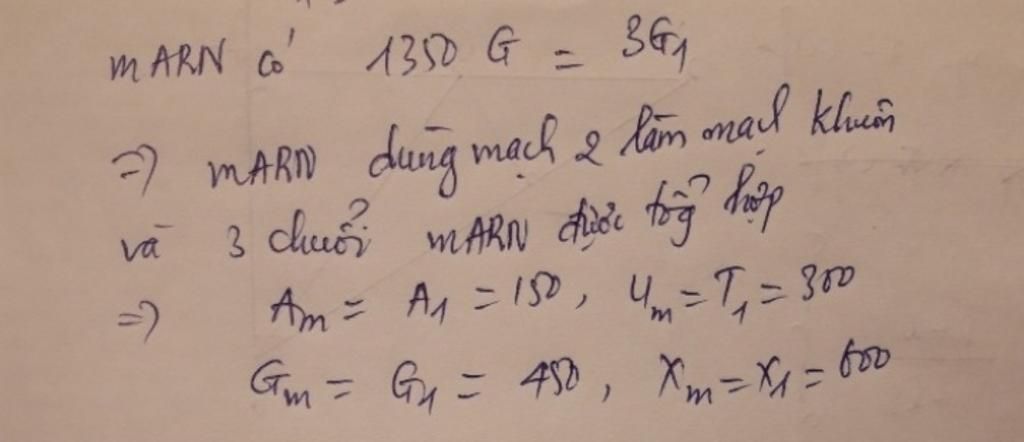 mARN có 1350 G = 3G1
=> mARN dùng mạch 2 làm mạch khuôn
và 3 chuỗi mARN được tổng hợp
=> Am = A1 = 150, Um = T1 = 300
Gm = G1 = 450, Xm = X1 = 600